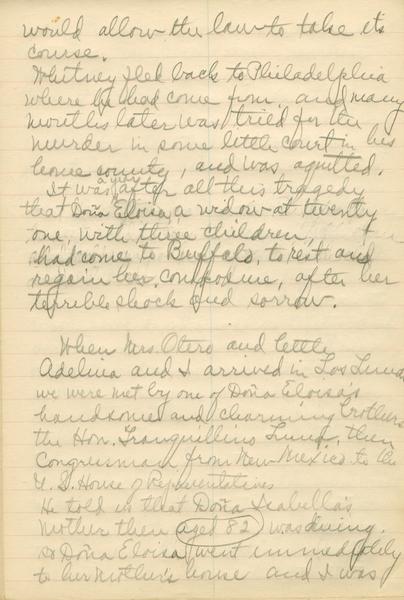 would allow the law to take its
course.
Whitney fled back to Philadelphia
where he had come from, and many
months later was tried for the
murder in some little court in his
home county, and was aquitted.
It was a year after all this tragedy
that Doña Eloisa, a widow at twenty
one, with three children,
had come to Buffalo, to rest and
regain her composure, after her
terrible shock and sorrow.
When Mrs. Otero and little
Adelina and I arrived in Los Lunas
we were met by one of Doña Eloisa's
handsome and charming brothers
the Hon. Tranquillino Luna, then
Congressman from New Mexico to the
U.S. House of Representatives
He told us that Doña Isabella's
mother then aged 82 was dying.
So Doña Eloisa went immediately
to her mother's house and I was